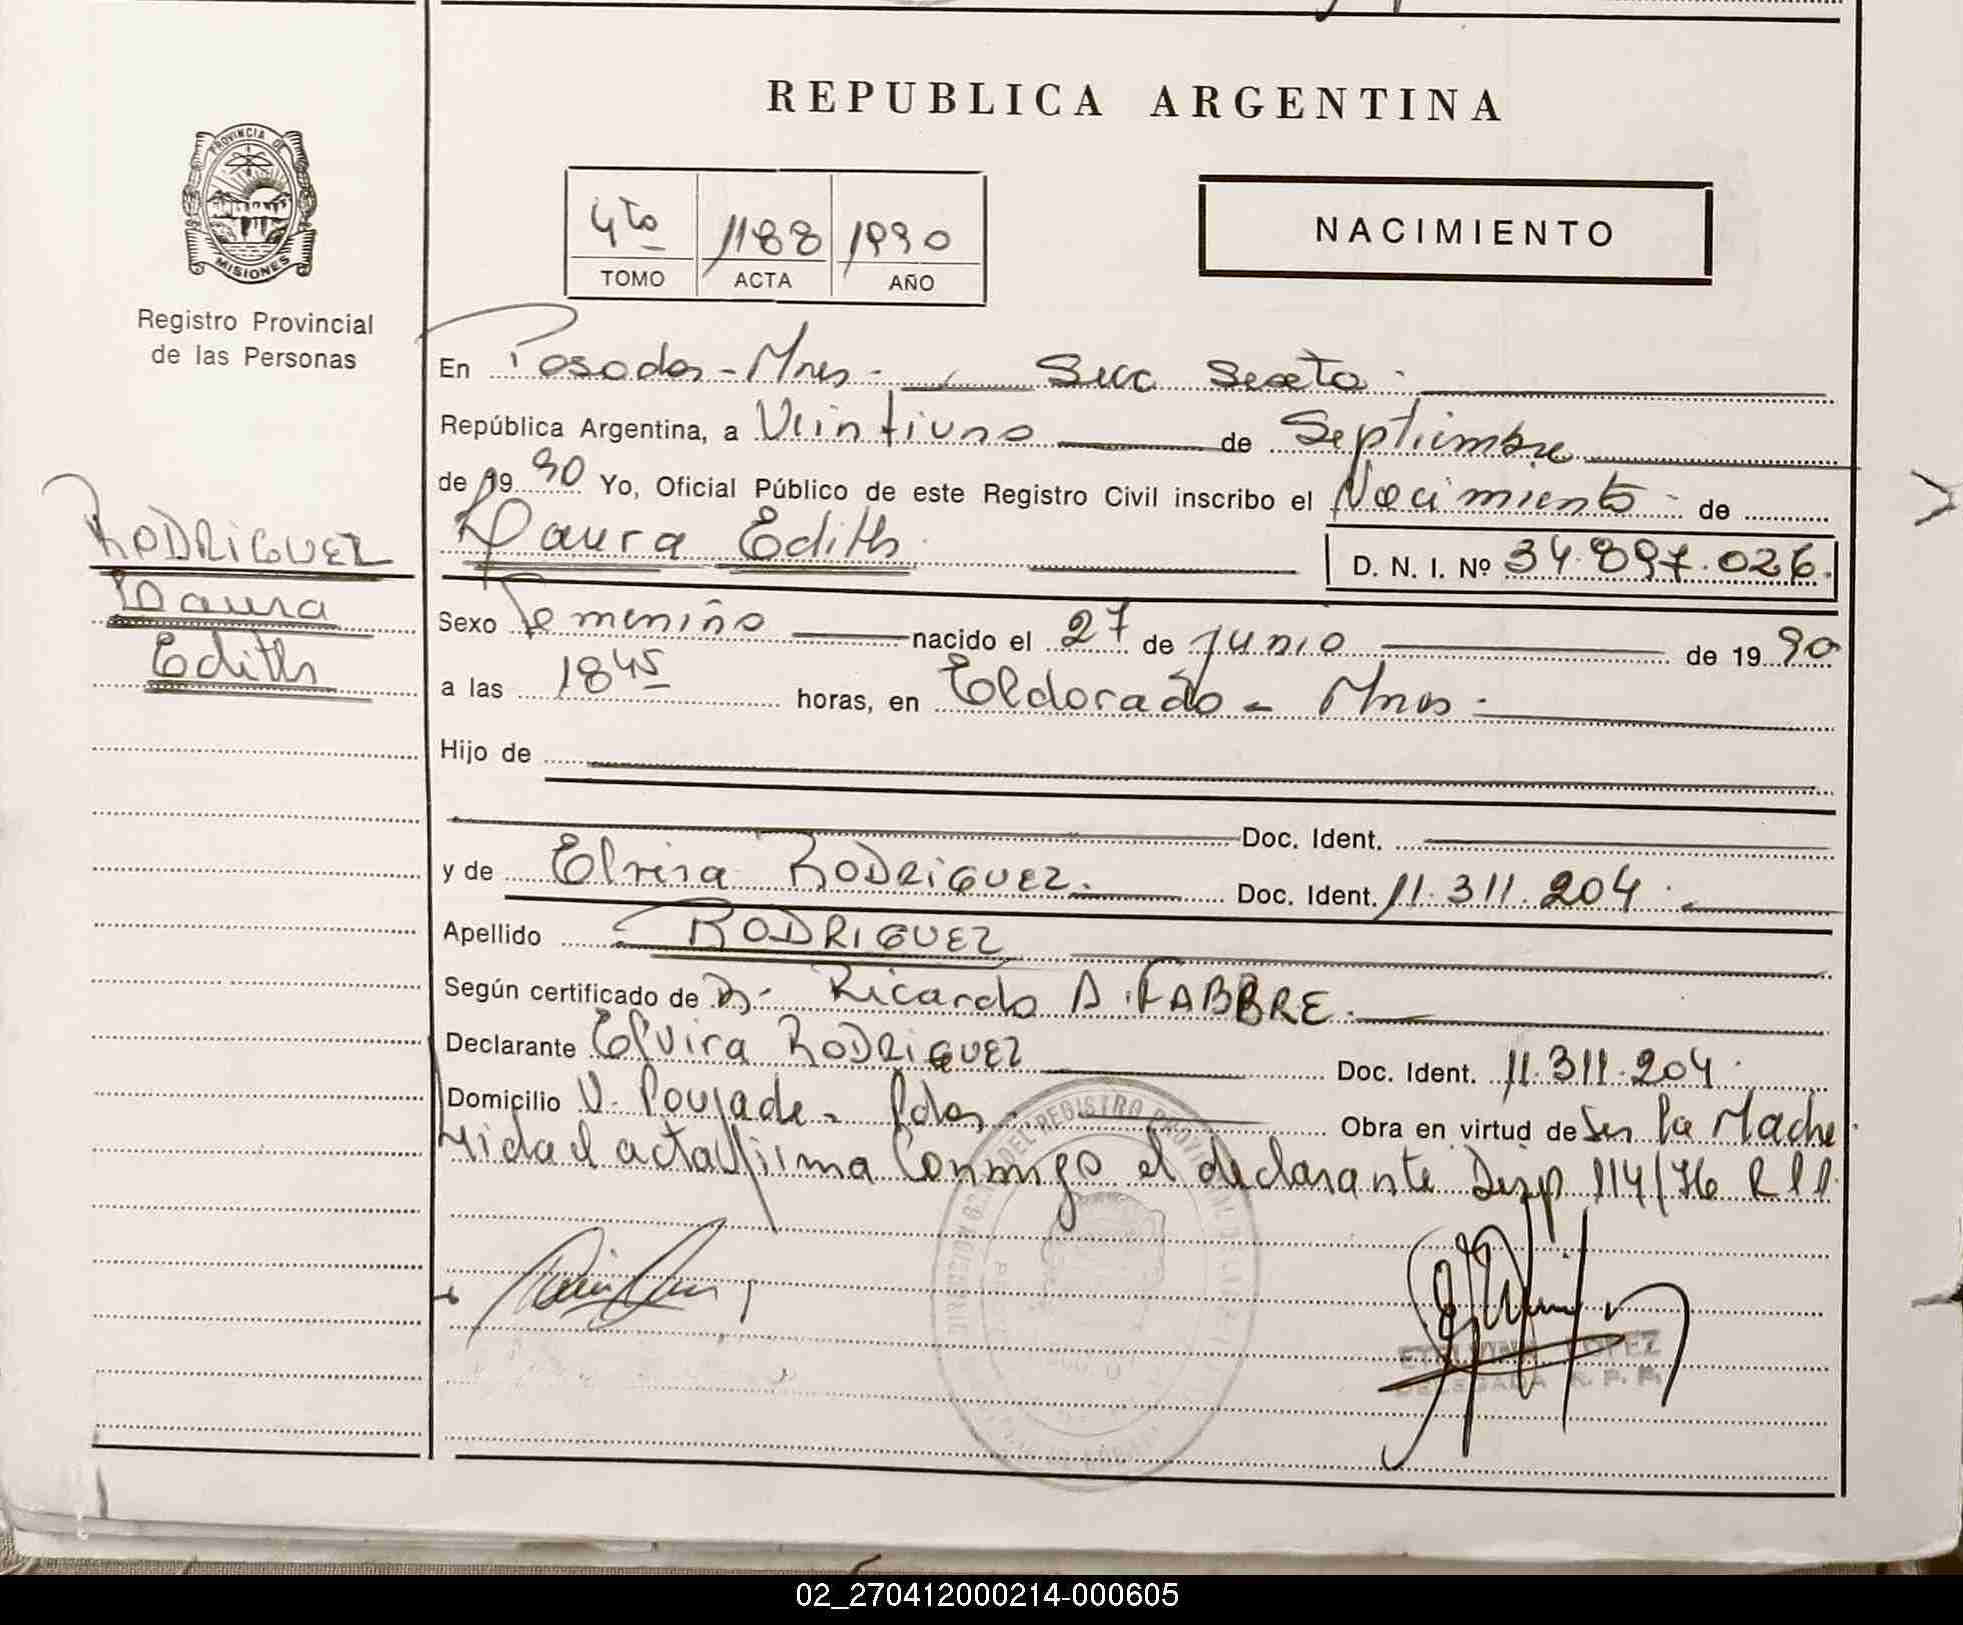 REPUBLICA ARGENTINA
PROVINCIA DE
MISIONES
Registro Provincial
de las Personas
4to 1188 1990
TOMO ACTA AÑO
NACIMIENTO
En Posadas - Mnes - Secc Sexta
República Argentina, a Veintiuno de Septiembre
de 19 90 Yo, Oficial Público de este Registro Civil inscribo el Nacimiento de
Laura Edith D. N. I. Nº 34.897.026.
RODRIGUEZ
Laura
Edith
Sexo Femenino nacido el 27 de Junio de 19 90
a las 18 45 horas, en Eldorado - Mnes -
Hijo de
Doc. Ident.
y de Elvira RODRIGUEZ. Doc. Ident. 11.311.204.
Apellido RODRIGUEZ
Según certificado de Dr. Ricardo A. FABBRE.
Declarante Elvira RODRIGUEZ Doc. Ident. 11.311.204.
Domicilio V. Poujade - Pdas - Obra en virtud de Ser la Madre
leida el acta firma conmigo el declarante Disp 114/76 R.P.P.
ETELVINA LOPEZ
DELEGADA R. P. P.
02_270412000214-000605